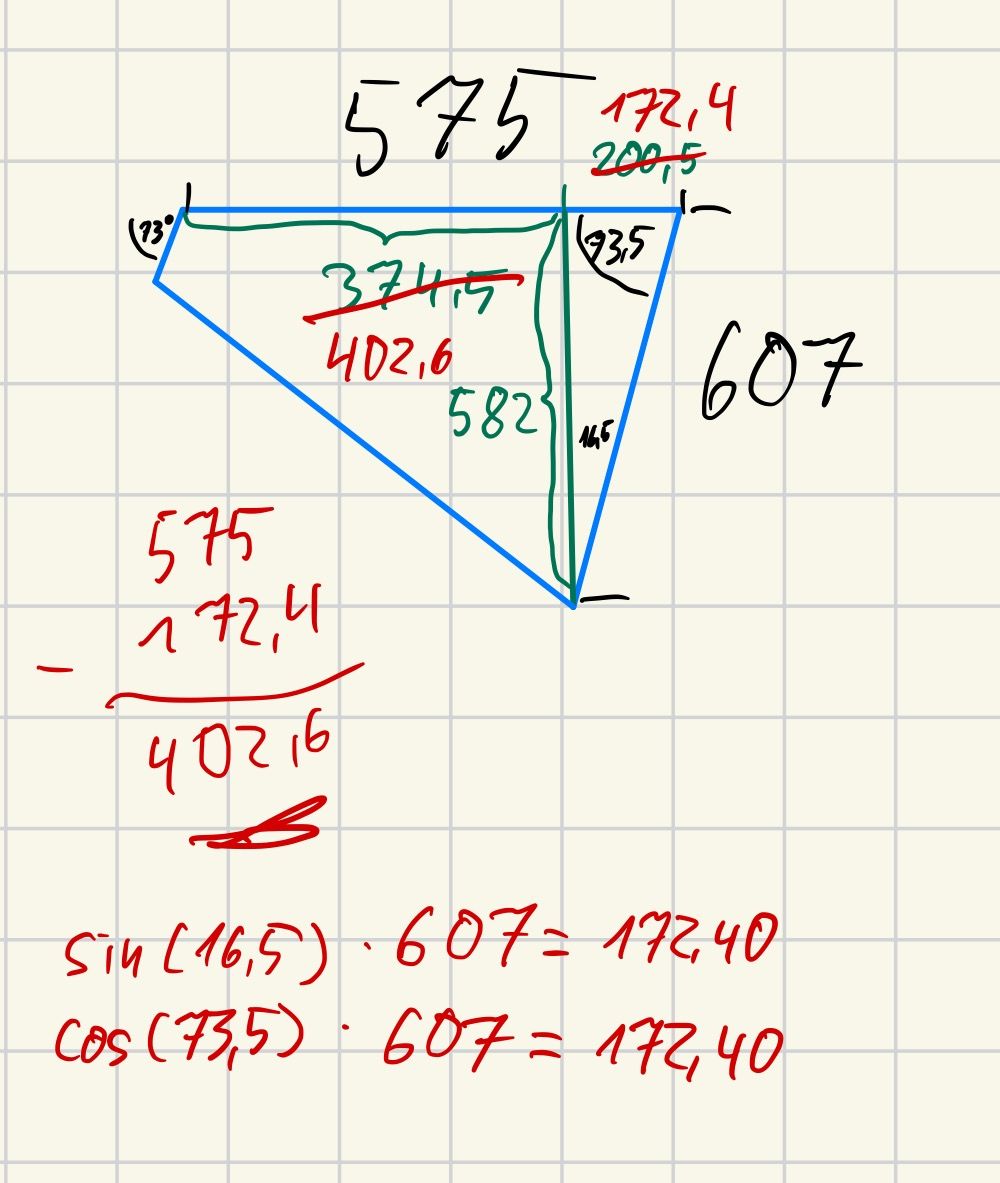 575
172,4
200,5
73°
73,5
374,5
402,6
607
582
16,5
575
172,4
-
402,6
sin(16,5) · 607 = 172,40
cos(73,5) · 607 = 172,40